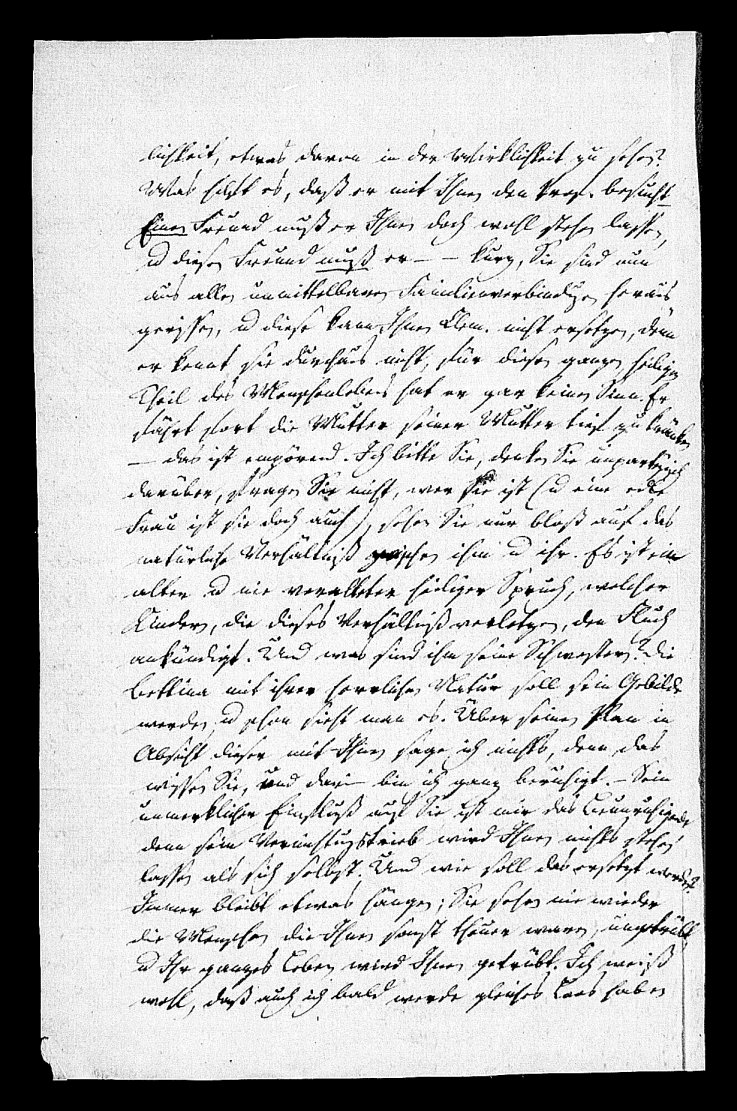 lichkeit, etwas davon in der Wirklichkeit zu sehen?
Was hilft es, daß er mit Ihnen den besucht
Einen Freund muß er Ihnen doch wohl stehen lassen,
u diesen Freund muß er — — kurz, Sie sind nun
aus allen unmittelbaren Familienverbindungen heraus
gerissen, u diese kann Ihnen Clem. nicht ersetzen, denn
er kennt sie durchaus nicht, für diesen ganzen, heiligen
Theil des Menschenlebens hat er gar keinen Sinn. Er
fährt fort die Mutter seiner Mutter tief zu kränken
— das ist empörend. Ich bitte Sie, denken Sie unpartheyisch
darüber, fragen Sie nicht, wer sie ist (u eine edle
Frau ist sie doch auch), sehen Sie nur bloß auf das
natürliche Verhältniß zwischen ihm u ihr. Es ist ein
alter u nie veralteter heiliger Spruch, welcher
Kindern, die dieses Verhältniß verletzen, den Fluch
ankündigt. Und was sind ihm seine Schwestern? Die
Bettina mit ihrer herrlichen Natur soll sein Gebilde
werden, u schon sieht man es. Über seinen Plan in
Absicht dieser mit Ihnen sage ich nichts, denn das
wissen Sie, und darin bin ich ganz beruhigt. — Sein
unmerklicher Einfluß auf Sie ist mir das Beunruhigende
denn sein Vernichtungstrieb wird Ihnen nichts stehen
lassen als sich selbst. Und wie soll das ersetzt werden?
Immer bleibt etwas hängen; Sie sehen nie wieder
die Menschen, die Ihnen sonst theuer waren, ungetrübt,
u Ihr ganzes Leben wird Ihnen getrübt. Ich weiß
wohl, daß auch ich bald werde gleiches Loos haben